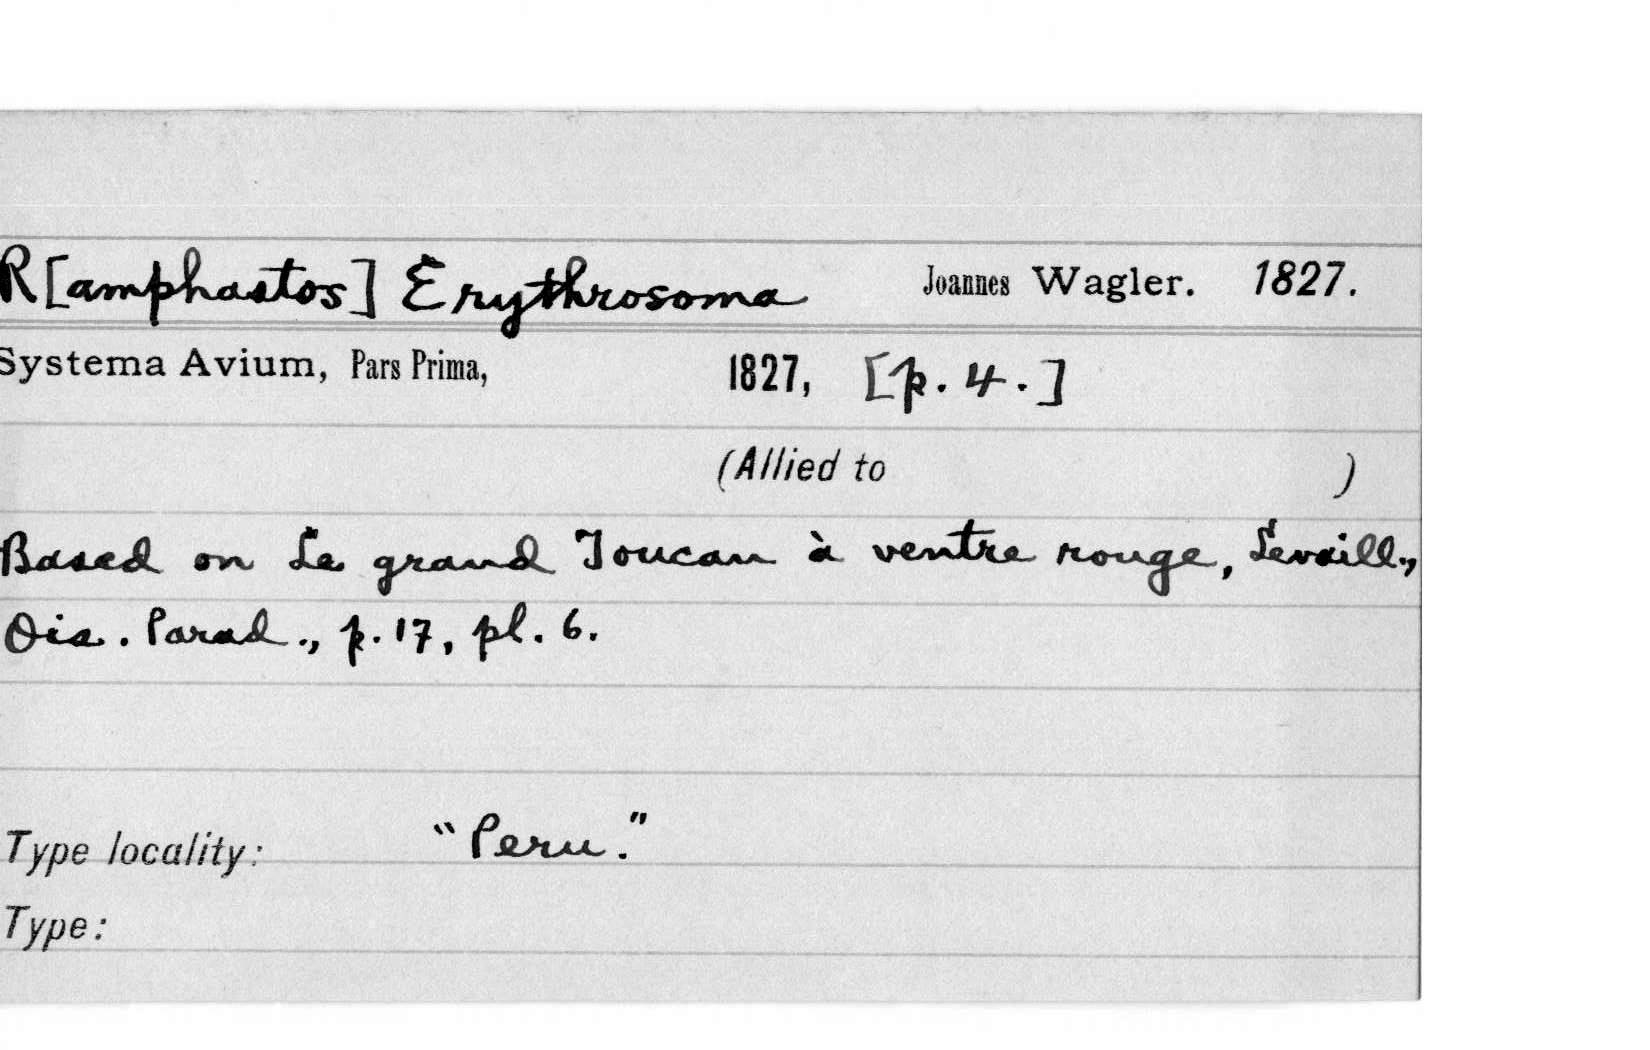 R[amphastos] Erythrosoma Joannes Wagler. 1827.
Systema Avium, Pars Prima, 1827, [p. 4.]
(Allied to )
Based on Le grand Toucan à ventre rouge, Levaill.,
Ois. Parad., p. 17, pl. 6.
Type locality: "Peru."
Type: